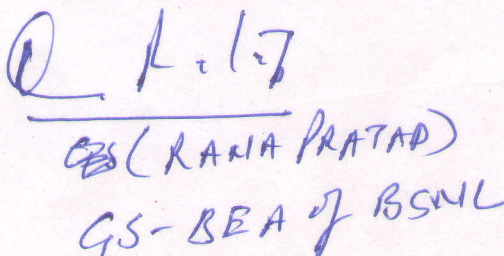 (RANA PRATAP)
GS-BEA of BSNL